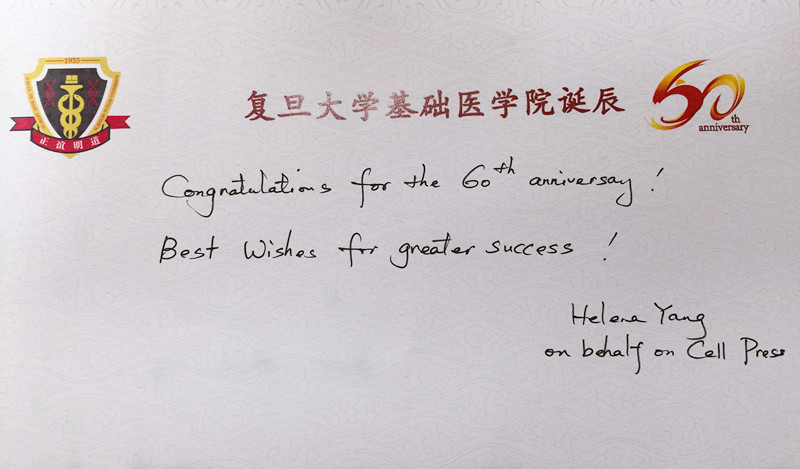 1955
正誼明道
复旦大学基础医学院诞辰
60th
anniversary
Congratulations for the 60th anniversay!
Best Wishes for greater success!
Helena Yang
on behalf on Cell Press